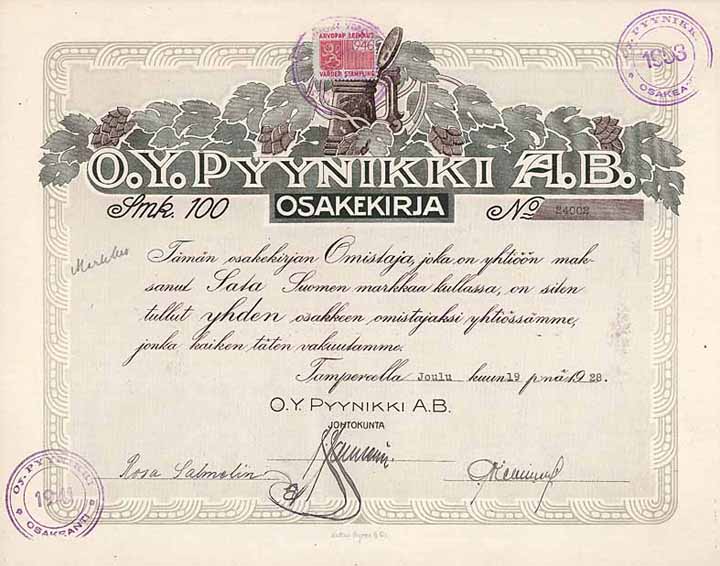 ARVOPAP. LEIMAUS
1946
VÄRDEP. STÄMPLING
OY. PYYNIKKI
1938
OSAKEA
O.Y. PYYNIKKI A.B.
Smk. 100
OSAKEKIRJA
No 24002
Markkaa
Tämän osakekirjan Omistaja, joka on yhtiöön mak-
sanut Sata Suomen markkaa kullassa, on siten
tullut yhden osakkeen omistajaksi yhtiössämme,
jonka kaiken täten vakuutamme.
Tampereella Joulu kuun 19 p:nä 1928.
O.Y. PYYNIKKI A.B.
JOHTOKUNTA
Rosa Salmelin
OY. PYYNIKKI
1941
OSAKEANTI